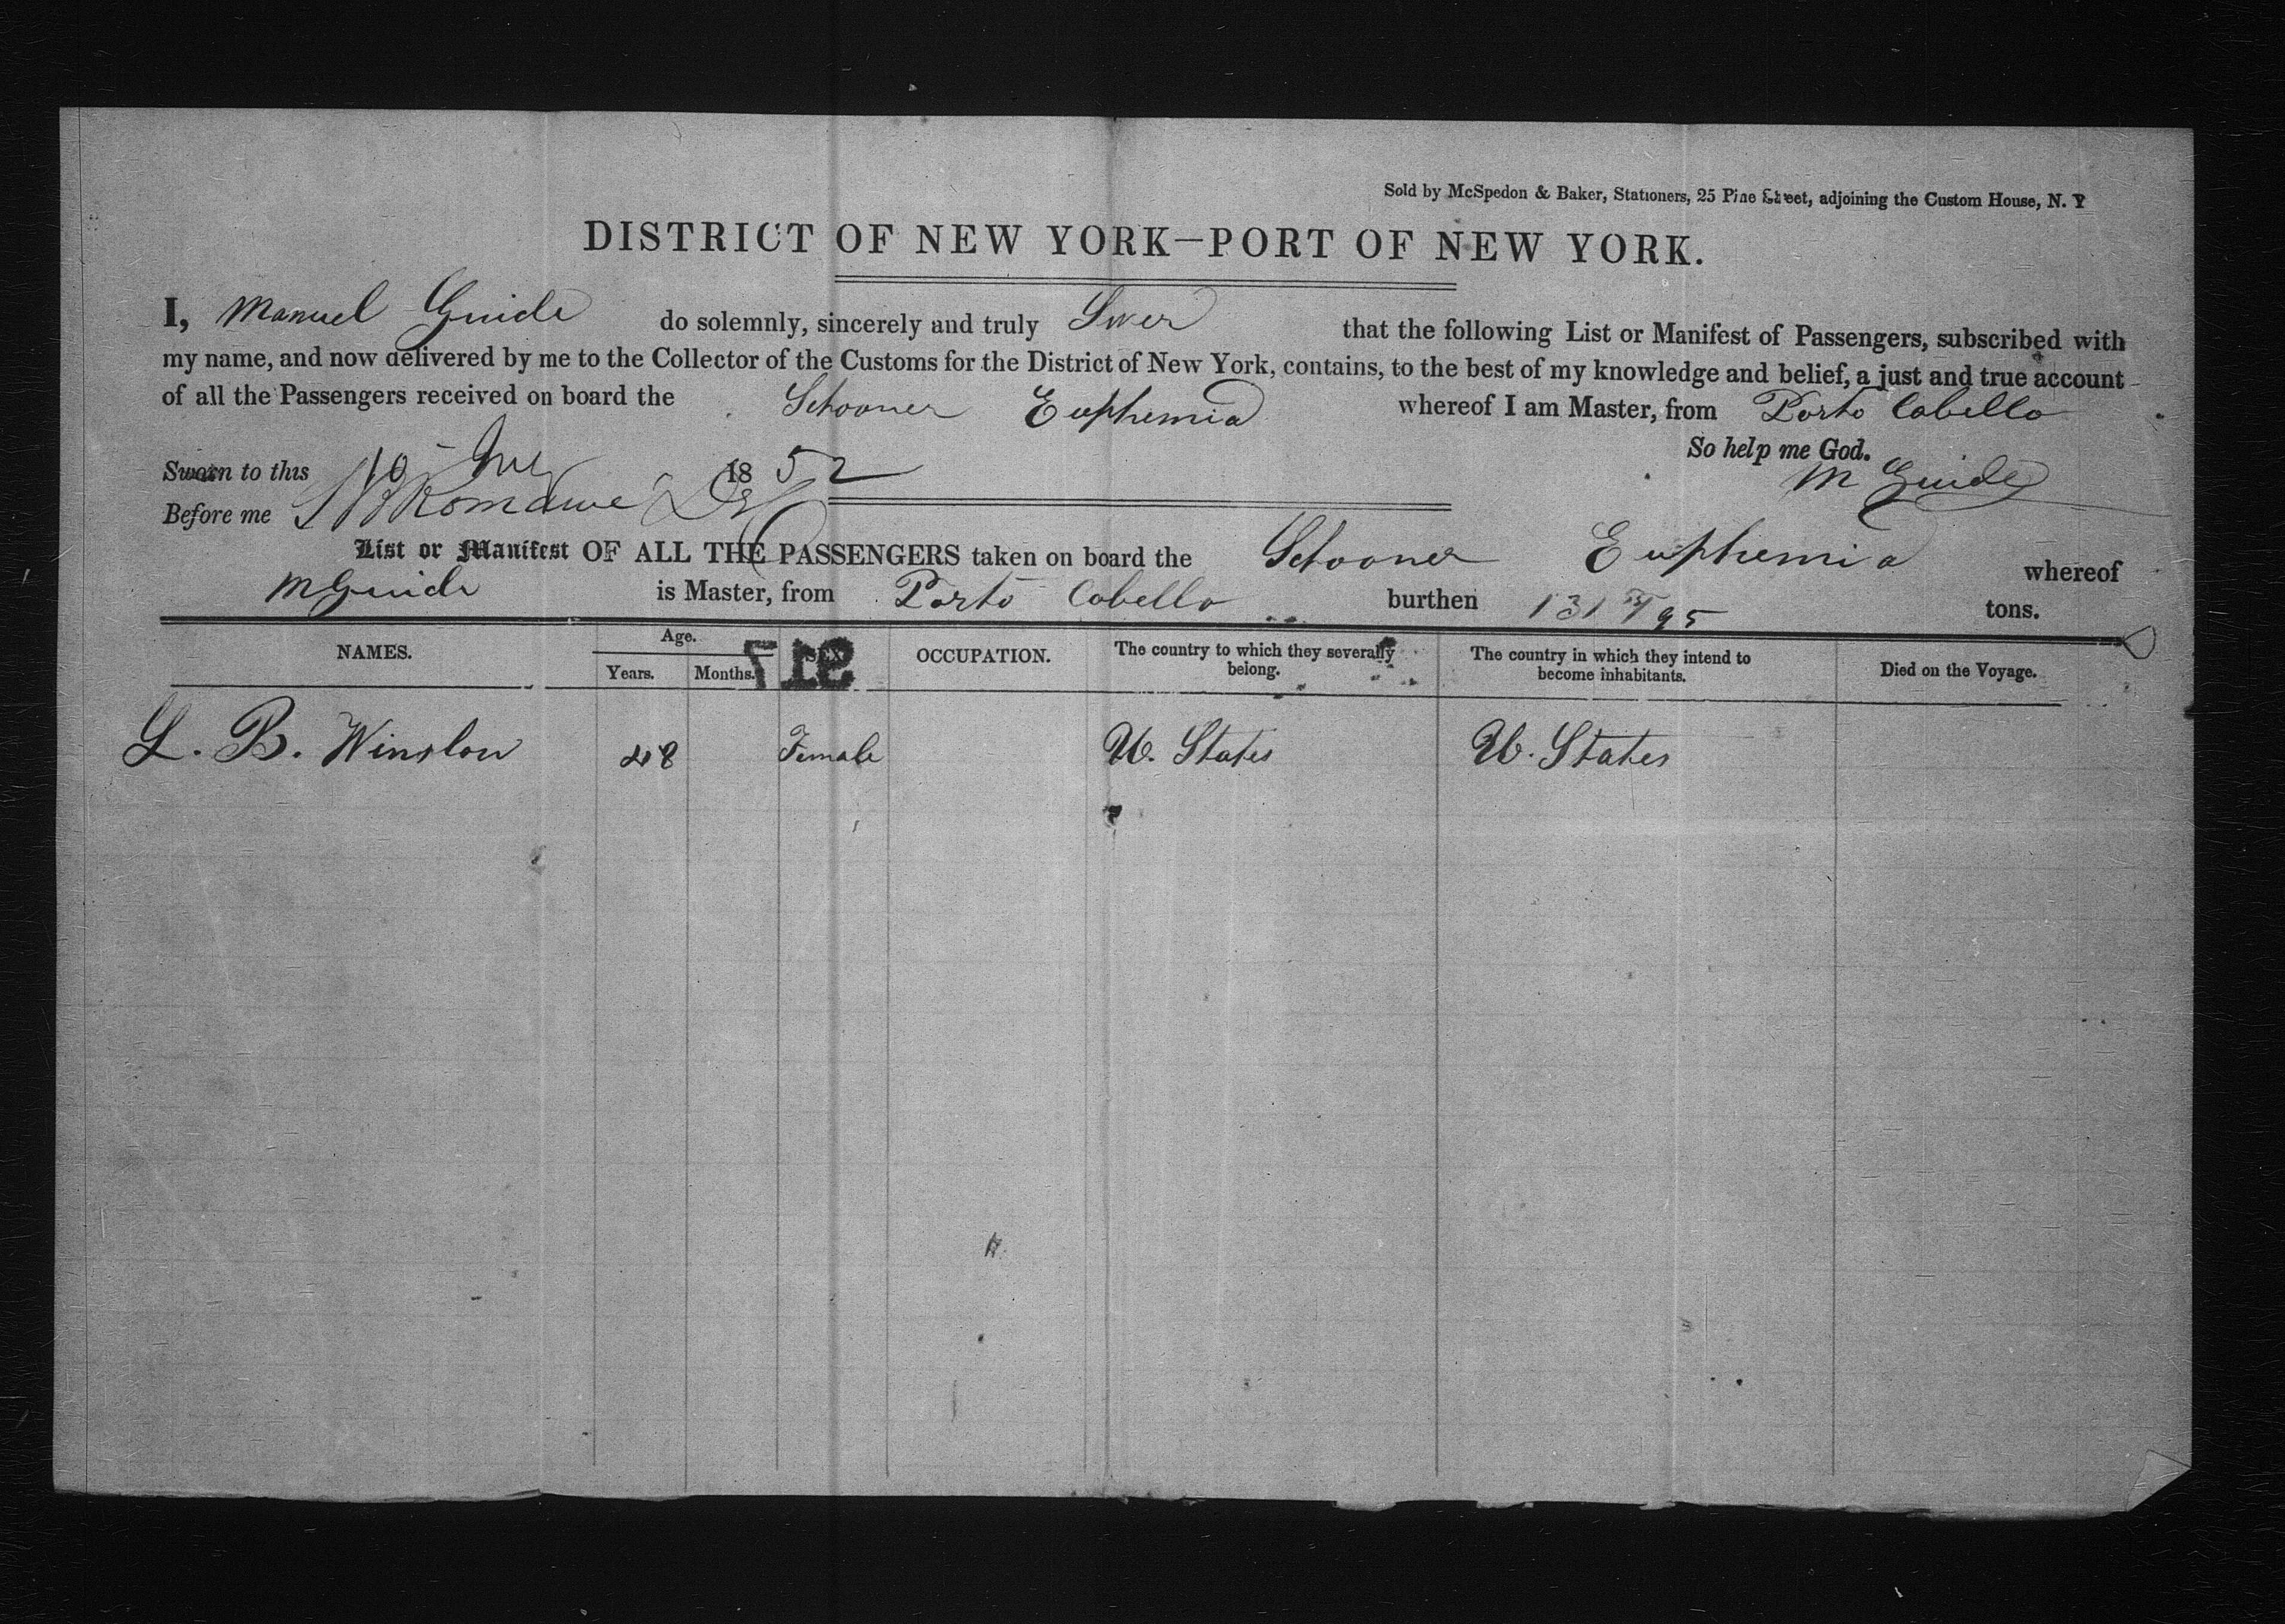 Sold by McSpedon & Baker, Stationers, 25 Pine Street, adjoining the Custom House, N. Y
DISTRICT OF NEW YORK—PORT OF NEW YORK.
I, Manuel Guide do solemnly, sincerely and truly Swer that the following List or Manifest of Passengers, subscribed with
my name, and now delivered by me to the Collector of the Customs for the District of New York, contains, to the best of my knowledge and belief, a just and true account
of all the Passengers received on board the Schooner Euphemia whereof I am Master, from Porto Cabello
So help me God.
Sworn to this 10 1852
M Guide
Before me
List or Manifest OF ALL THE PASSENGERS taken on board the Schooner Euphemia whereof
M Guide is Master, from Porto Cabello burthen 131 /95 tons.
NAMES. Age. Years. Months. SEX OCCUPATION. The country to which they severally belong. The country in which they intend to become inhabitants. Died on the Voyage.
917
L. B. Winslow 48 Female U. States U. States